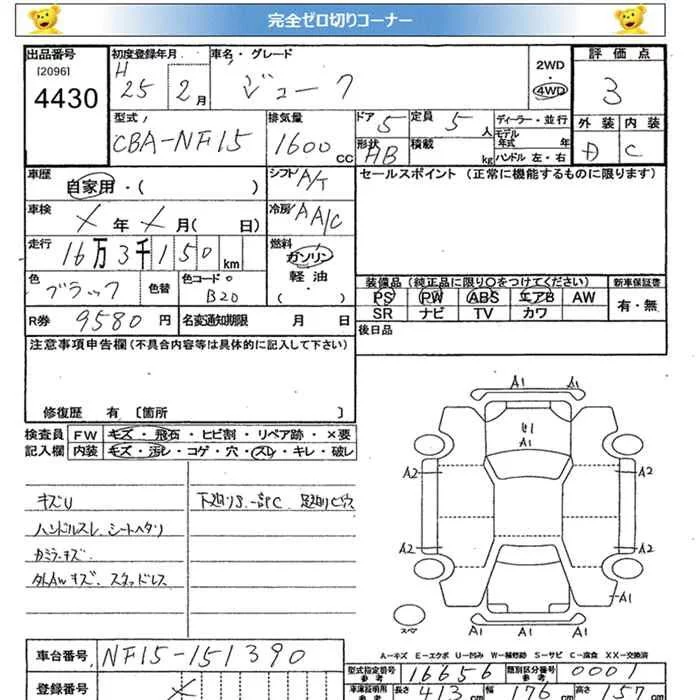 完全ゼロ切りコーナー
出品番号 初度登録年月 車名・グレード 2WD・4WD 評価点
[2096] H
4430 25 2月 ジューク 3
型式 排気量 ドア 5 定員 5人 ディーラー・並行 外装 内装
CBA-NF15 1600cc 形状 HB 積載 kg モデル年式 年 D C
ハンドル 左・右
車歴 自家用・( ) シフト A/T セールスポイント (正常に機能するものに限ります)
車検 X年 X月( 日) 冷房 AA/C
走行 16万3千150km 燃料 ガソリン
軽油
・( )
色 ブラック 色替 色コード B20 装備品 (純正品に限り○をつけてください) 新車保証書
PS PW ABS エアB AW 有・無
SR ナビ TV カワ
R券 9580円 名変通知期限 月 日 後日品
注意事項申告欄 (不具合内容等は具体的に記入して下さい)
修復歴 有 〔箇所 〕
検査員 FW キズ・飛石・ヒビ割・リペア跡・×要
記入欄 内装 キズ・汚レ・コゲ・穴・スレ・キレ・破レ
キズU 下廻りS.一部C
ハンドルスレ、シートヘタリ
カミラーキズ
外AWキズ、スタッドレス
A1 A1
U1
A1
A2 A2
A2 A2
A1
A1 A1
スペア
A−キズ E−エクボ U−凹み W−補修跡 S−サビ C−腐食 XX−交換済
車台番号 NF15-151390
型式指定番号 参考 16656 類別区分番号 参考 0001
登録番号 X 車庫証明用 参考 長さ 413cm 幅 176cm 高さ 157cm